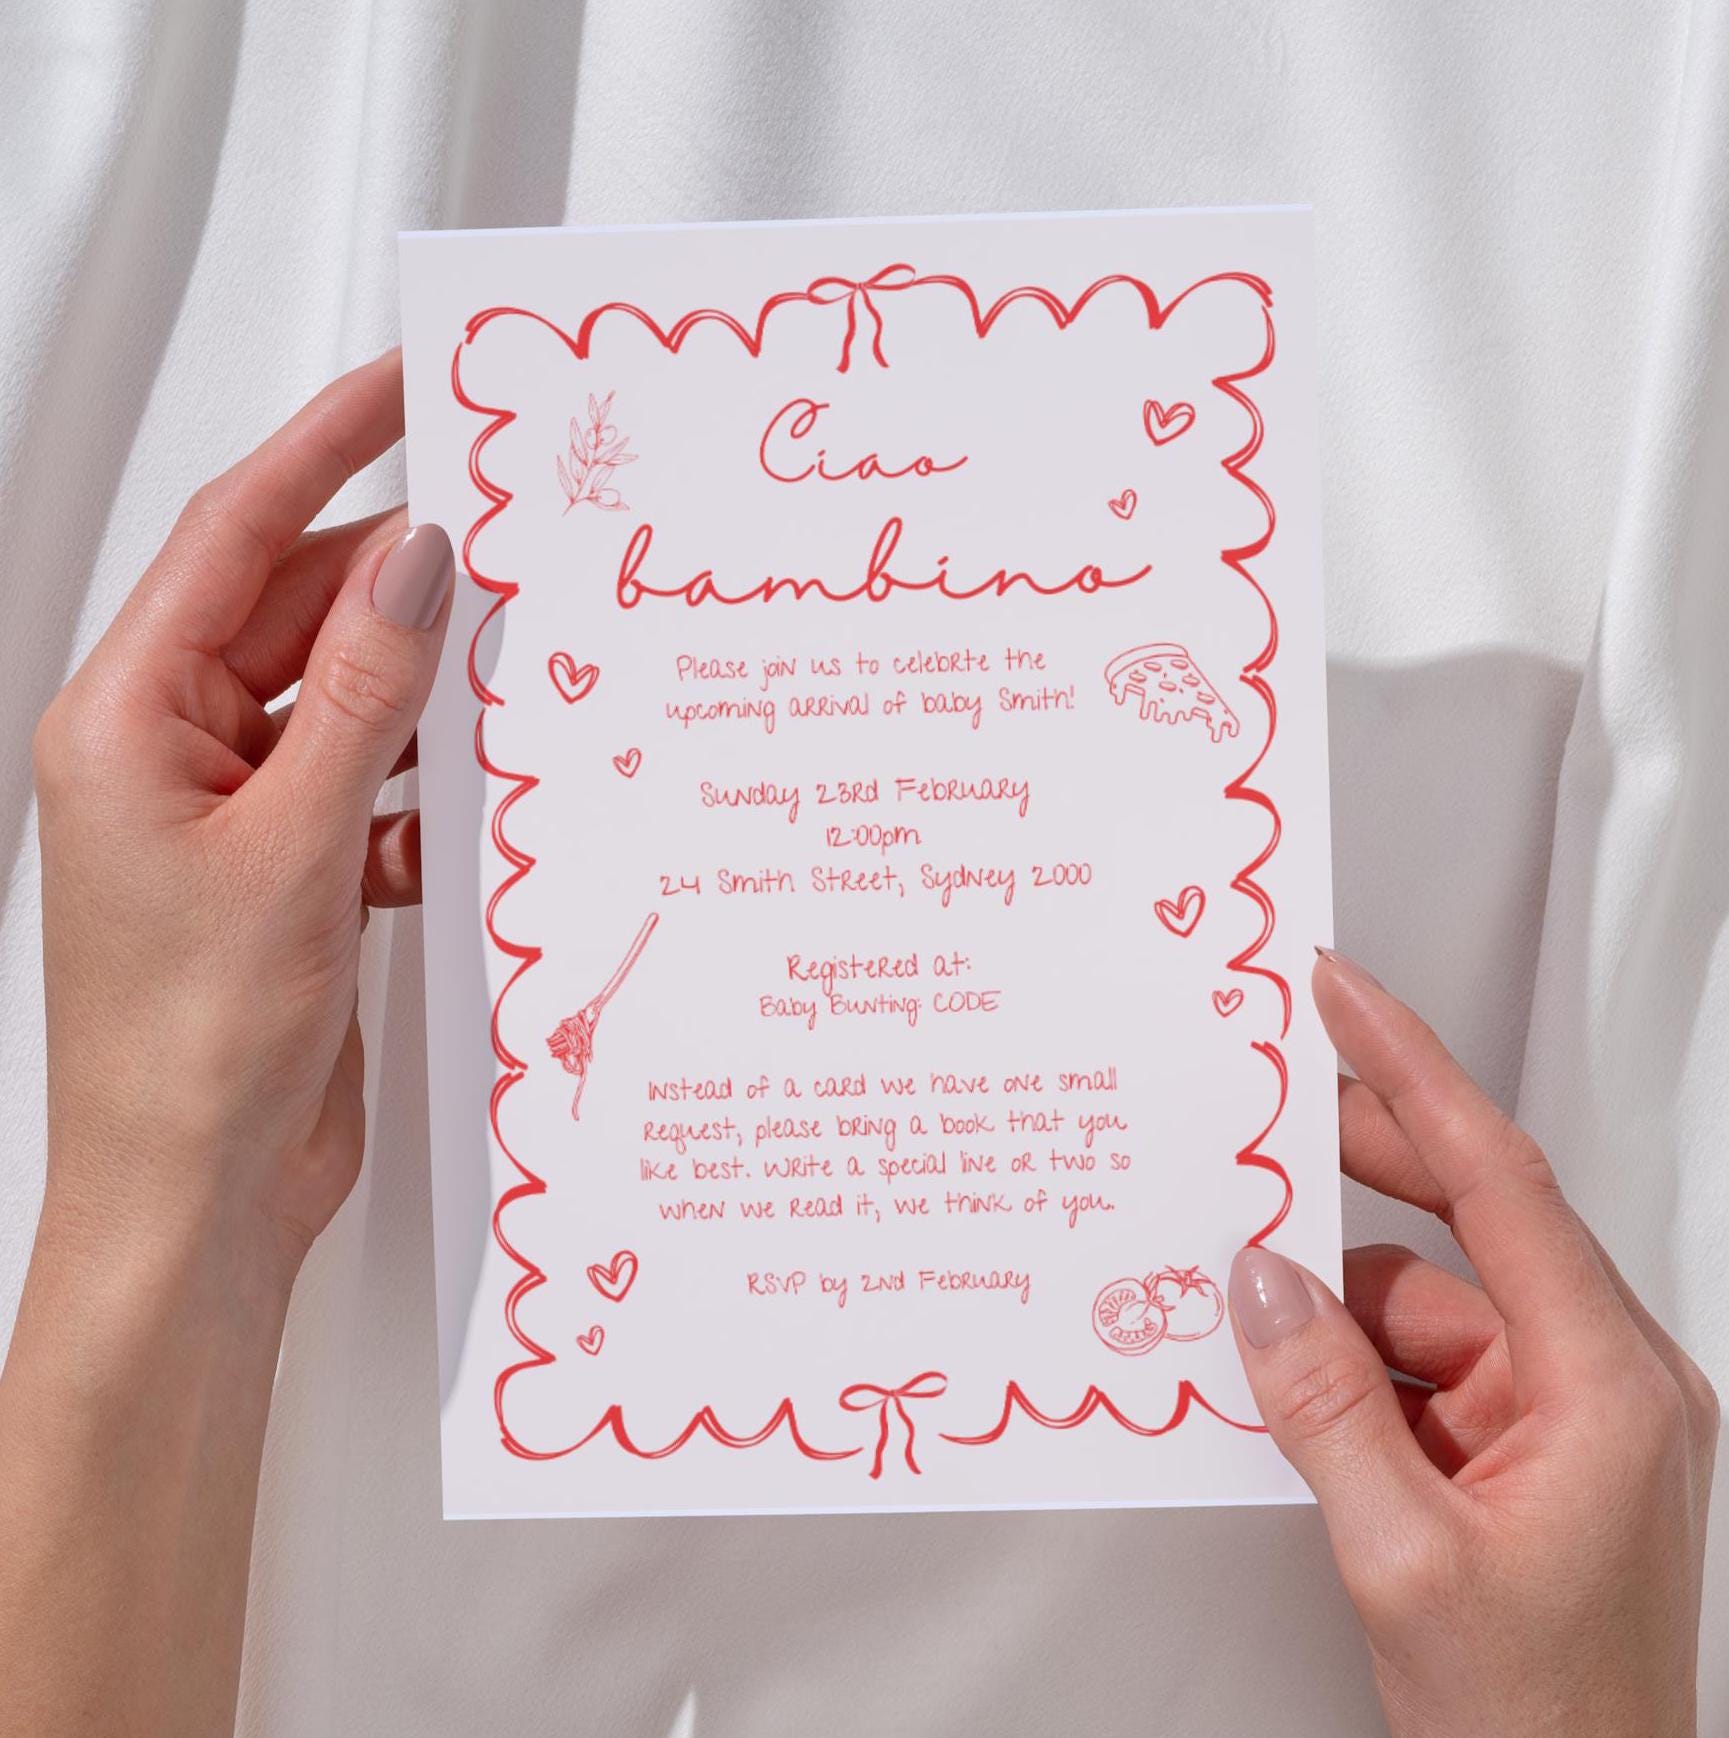 Ciao
bambino
Please join us to celebrte the
upcoming arrival of baby Smith!
Sunday 23rd February
12:00pm
24 Smith Street, Sydney 2000
Registered at:
Baby Bunting: CODE
Instead of a card we have one small
request, please bring a book that you
like best. Write a special line or two so
when we read it, we think of you.
RSVP by 2nd February